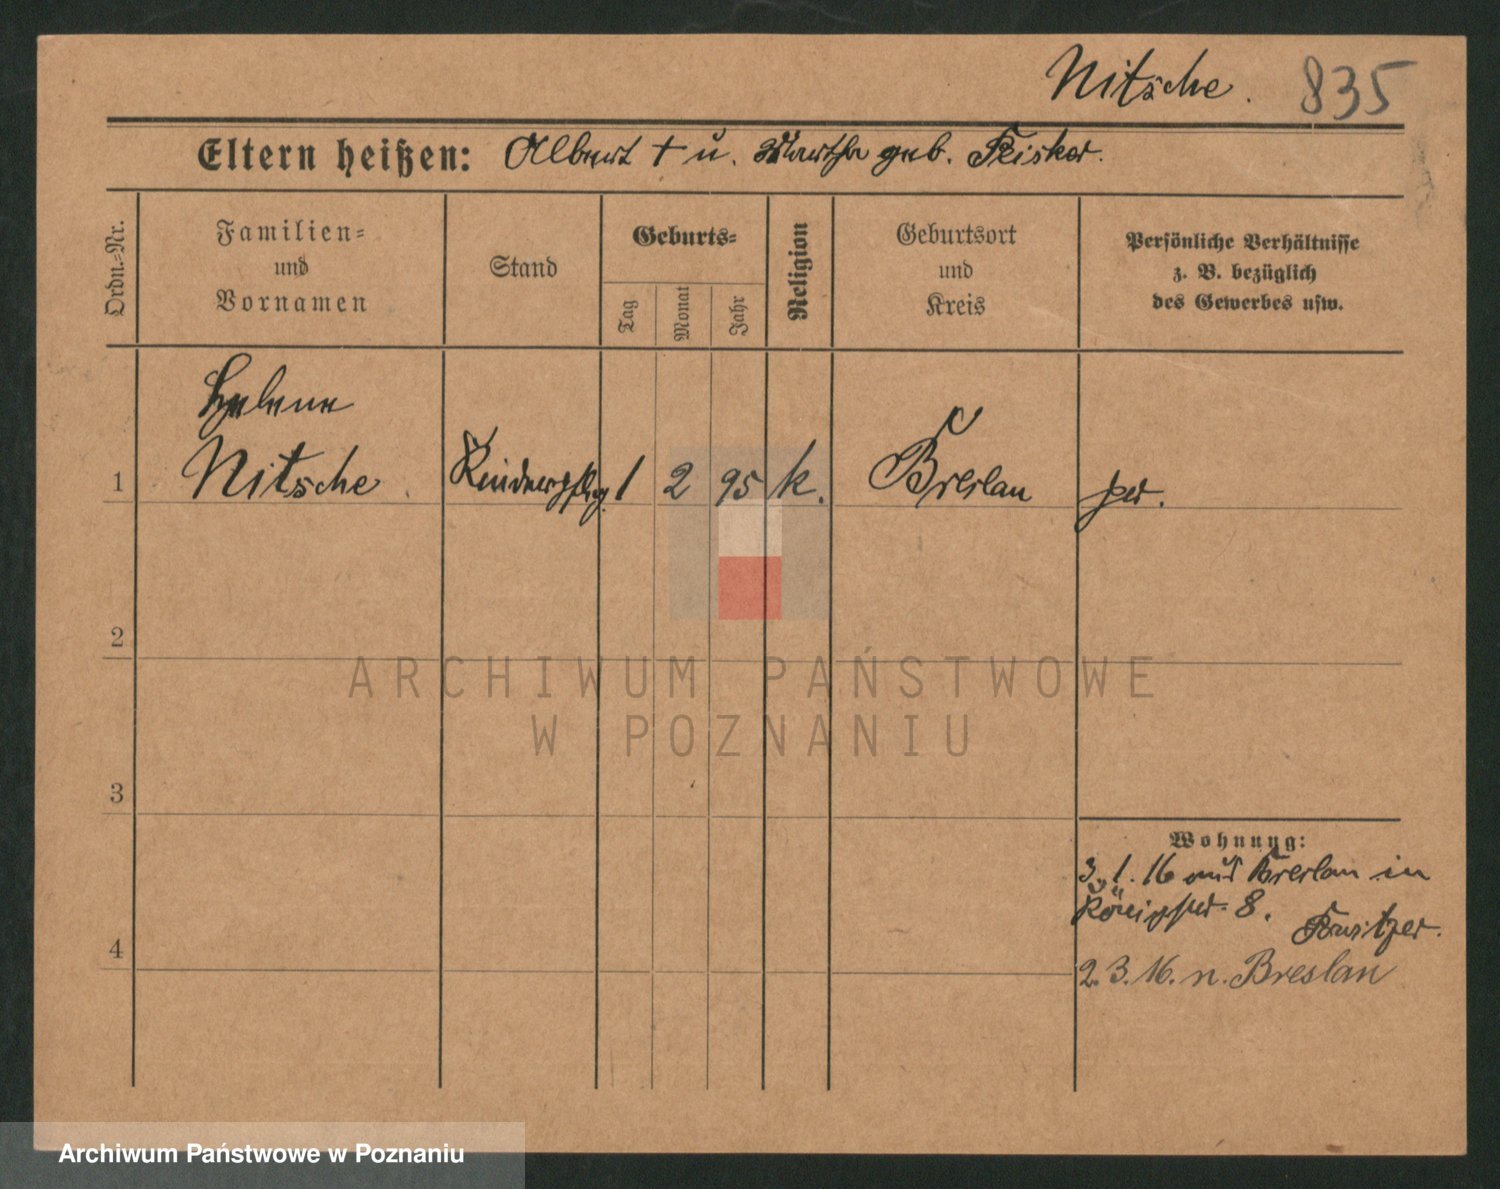 Nitsche. 835
Eltern heißen: Albert † u. Martha geb.
Ordn.-Nr.
Familien-
und
Vornamen
Stand
Geburts-
Tag
Monat
Jahr
Religion
Geburtsort
und
Kreis
Persönliche Verhältnisse
z. B. bezüglich
des Gewerbes usw.
Helene
1 Nitsche. Kinderpflg. 1 2 95 k. Breslau
2
ARCHIWUM PAŃSTWOWE
W POZNANIU
3
Wohnung:
3.1.16 aus Breslau in
Königstr. 8.
4
2.3.16. n. Breslau
Archiwum Państwowe w Poznaniu